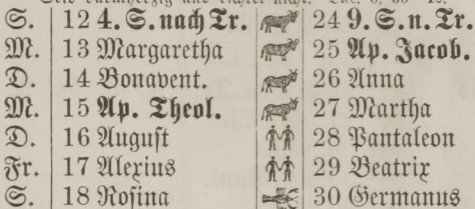 S. 12 4. S. nach Tr. 24 9. S. n. Tr.
M. 13 Margaretha 25 Ap. Jacob.
D. 14 Bonavent. 26 Anna
M. 15 Ap. Theol. 27 Martha
D. 16 August 28 Pantaleon
Fr. 17 Alexius 29 Beatrix
S. 18 Rosina 30 Germanus